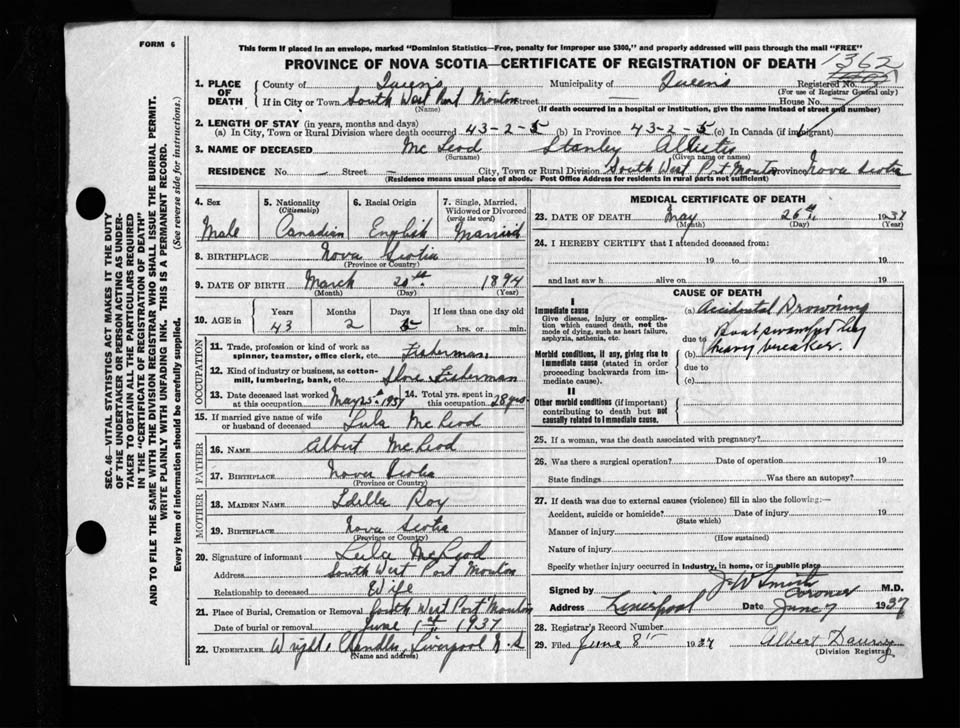 FORM 6
This form if placed in an envelope, marked "Dominion Statistics—Free, penalty for improper use $300," and properly addressed will pass through the mail "FREE"
PROVINCE OF NOVA SCOTIA—CERTIFICATE OF REGISTRATION OF DEATH
1362
Registered No.
(For use of Registrar General only)
1. PLACE OF DEATH
County of Queens Municipality of Queens
If in City or Town South West Port Mouton street House No.
(Name) (If death occurred in a hospital or institution, give the name instead of street and number)
2. LENGTH OF STAY (in years, months and days)
(a) In City, Town or Rural Division where death occurred 43-2-5 (b) In Province 43-2-5 (c) In Canada (if immigrant)
3. NAME OF DECEASED Mc Leod Stanley
(Surname) (Given name or names)
RESIDENCE No. - Street - City, Town or Rural Division South West Port Mouton Province Nova Scotia
(Residence means usual place of abode. Post Office Address for residents in rural parts not sufficient)
4. Sex
Male
5. Nationality
(Citizenship)
Canadian
6. Racial Origin
English
7. Single, Married, Widowed or Divorced
(write the word)
Married
8. BIRTHPLACE Nova Scotia
(Province or Country)
9. DATE OF BIRTH March 20th 1894
(Month) (Day) (Year)
10. AGE in
Years Months Days If less than one day old
43 2 5 hrs. or min.
OCCUPATION
11. Trade, profession or kind of work as spinner, teamster, office clerk, etc. Fisherman
12. Kind of industry or business, as cotton-mill, lumbering, bank, etc. Shore Fisherman
13. Date deceased last worked at this occupation May 25th 1937
14. Total yrs. spent in this occupation 28 yrs
15. If married give name of wife or husband of deceased Lula McLeod
FATHER
16. NAME Albert McLeod
17. BIRTHPLACE Nova Scotia
(Province or Country)
MOTHER
18. MAIDEN NAME Roy
19. BIRTHPLACE Nova Scotia
(Province or Country)
20. Signature of informant Lula McLeod
Address South West Port Mouton
Relationship to deceased Wife
21. Place of Burial, Cremation or Removal South West Port Mouton
Date of burial or removal June 1st 1937
22. UNDERTAKER Wright & Chandler, Liverpool N.S
(Name and address)
MEDICAL CERTIFICATE OF DEATH
23. DATE OF DEATH May 26th 1937
(Month) (Day) (Year)
24. I HEREBY CERTIFY that I attended deceased from:
19 to 19
and last saw h alive on 19
CAUSE OF DEATH
I
Immediate cause
Give disease, injury or complication which caused death, not the mode of dying, such as heart failure, asphyxia, asthenia, etc.
Morbid conditions, if any, giving rise to immediate cause (stated in order proceeding backwards from immediate cause).
II
Other morbid conditions (if important) contributing to death but not causally related to immediate cause.
(a) Accidental Drowning
Boat swamped by
due to
(b) heavy breaker.
due to
(c)
25. If a woman, was the death associated with pregnancy?
26. Was there a surgical operation? Date of operation 19
State findings Was there an autopsy?
27. If death was due to external causes (violence) fill in also the following:—
Accident, suicide or homicide? Date of injury 19
(State which)
Manner of injury
(How sustained)
Nature of injury
Specify whether injury occurred in Industry, in home, or in public place
Signed by J W Smith M.D.
Coroner
Address Liverpool Date June 7 1937
28. Registrar's Record Number
29. Filed June 8th 1937 Albert
(Division Registrar)
SEC. 46—VITAL STATISTICS ACT MAKES IT THE DUTY
OF THE UNDERTAKER OR PERSON ACTING AS UNDER-
TAKER TO OBTAIN ALL THE PARTICULARS REQUIRED
IN THE "CERTIFICATE OF REGISTRATION OF DEATH"
AND TO FILE THE SAME WITH THE DIVISION REGISTRAR WHO SHALL ISSUE THE BURIAL PERMIT.
WRITE PLAINLY WITH UNFADING INK. THIS IS A PERMANENT RECORD.
Every item of information should be carefully supplied. (See reverse side for instructions.)